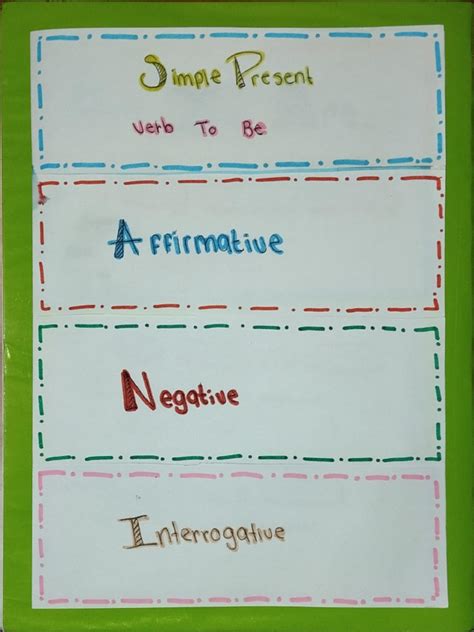 Simple Present
Verb To Be
Affirmative
Negative
Interrogative